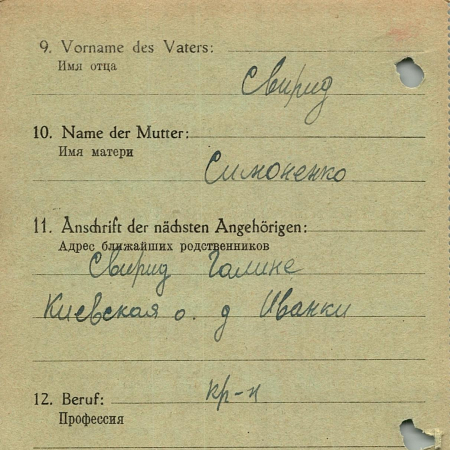 9. Vorname des Vaters:
Имя отца
Свирид
10. Name der Mutter:
Имя матери
Симоненко
11. Anschrift der nächsten Angehörigen:
Адрес ближайших родственников
Свирид Галине
Киевская о. д Иванки
12. Beruf:
кр-н
Профессия